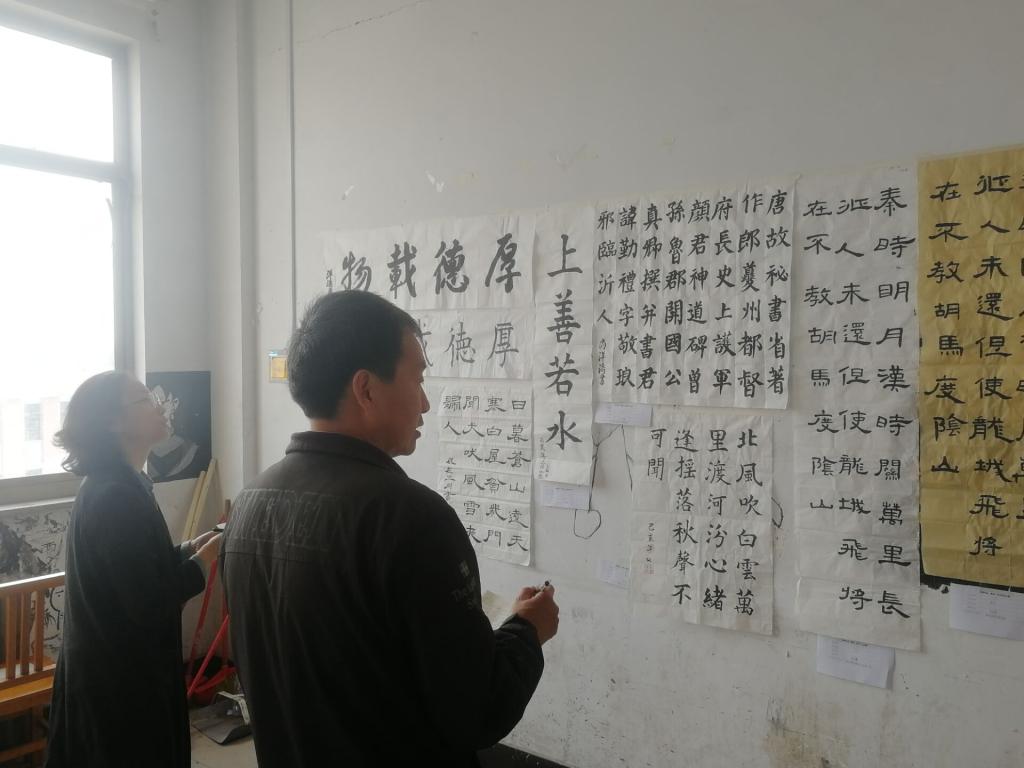 厚德載物
厚德
日暮蒼山遠天
寒白屋貧柴門
聞犬吠風雪夜
歸人
上善若水
唐故秘書省著
作郎夔州都督
府長史上護軍
顏君神道碑曾
孫魯郡開國公
真卿撰并書君
諱勤禮字敬琅
邪臨沂人
北風吹白雲萬
里渡河汾心緒
逢搖落秋聲不
可聞
秦時明月漢時關萬里長
征人未還但使龍城飛將
在不教胡馬度陰山
征人未還但使龍城飛將
在不教胡馬度陰山